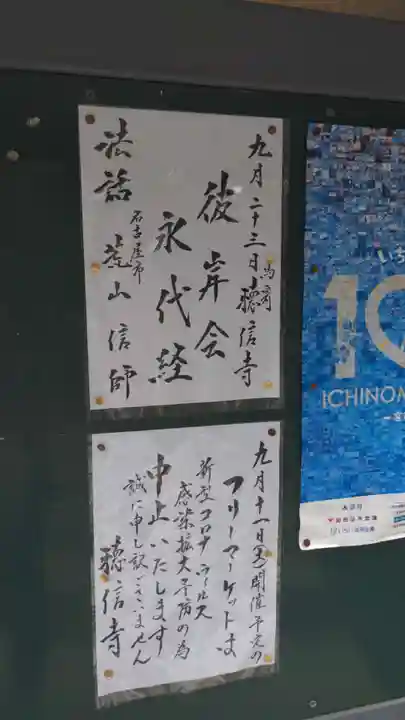 九月二十三日
馬寄
聴信寺
彼岸会
永代経
法話
名古屋市
荒山信師
九月十一日(天)開催予定の
フリーマーケットは
新型コロナウールス
感染拡大予防の為
中止いたします
誠に申し訳ございません
聴信寺
いち
10
ICHINOM